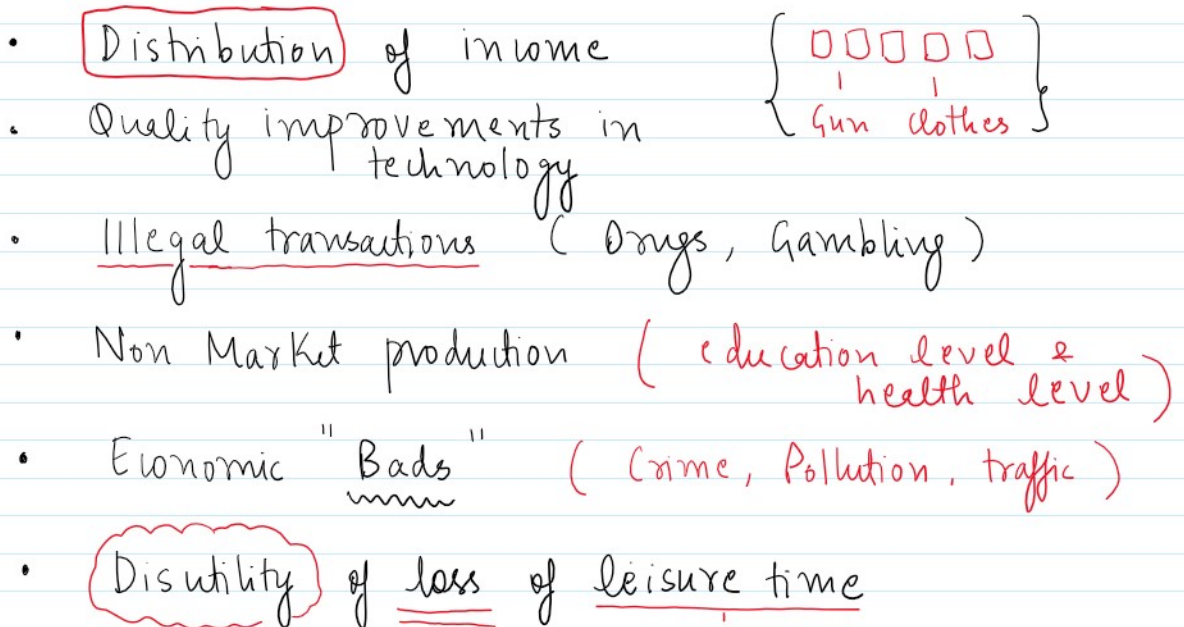 • Distribution of income
Gun clothes
• Quality improvements in
technology
• Illegal transactions ( Drugs, Gambling )
• Non Market production ( education level &
health level )
• Economic "Bads" ( Crime, Pollution, traffic )
• Disutility of loss of leisure time